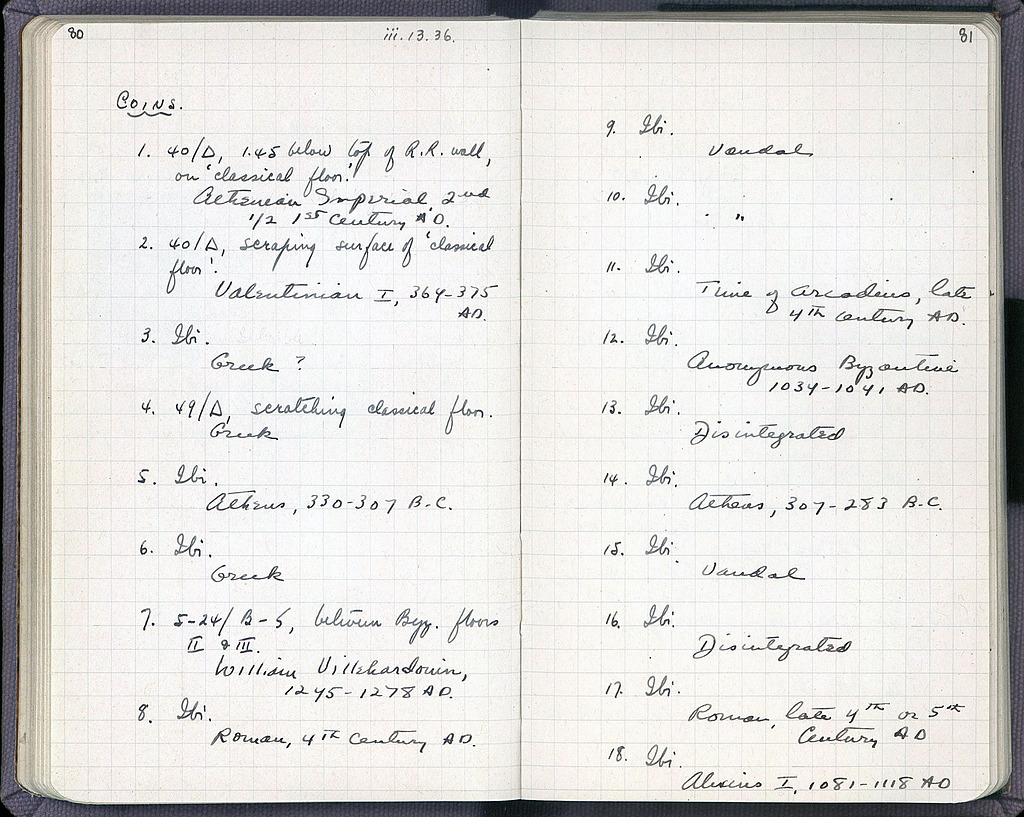 80
iii.13.36.
COINS.
1. 40/Δ, 1.45 below top of R.R. wall,
on 'classical floor'.
Athenian Imperial, 2nd
1/2 1st Century AD.
2. 40/Δ, scraping surface of 'classical
floor'.
Valentinian I, 364-375
AD.
3. Ibi.
Greek ?
4. 49/Δ, scratching classical floor.
Greek
5. Ibi.
Athens, 330-307 B.C.
6. Ibi.
Greek
7. 5-24/B-S, between Byz. floors
II & III.
William Villehardouin,
1245-1278 AD.
8. Ibi.
Roman, 4th Century AD.
81
9. Ibi.
Vandal
10. Ibi.
"
11. Ibi.
Time of Arcadius, late
4th Century AD.
12. Ibi.
Anonymous Byzantine
1034-1041 AD.
13. Ibi.
Disintegrated
14. Ibi.
Athens, 307-283 B.C.
15. Ibi.
Vandal
16. Ibi.
Disintegrated
17. Ibi.
Roman, late 4th or 5th
Century AD
18. Ibi.
Alexius I, 1081-1118 AD